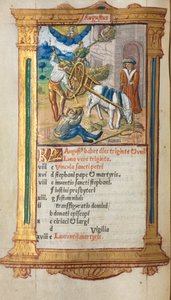 Augustus
Augustus habet dies triginta & vnū
Luna vero triginta.
viii c Vincula sancti petri
xvi d stephani pape & martyris
v e inuentio sancti stephani
f Justini presbyteri
g festum niuis
transfiguratio domini
b donati episcopi
c ciriaci & largi
d Vigilia
xviii e Laurentii martyris